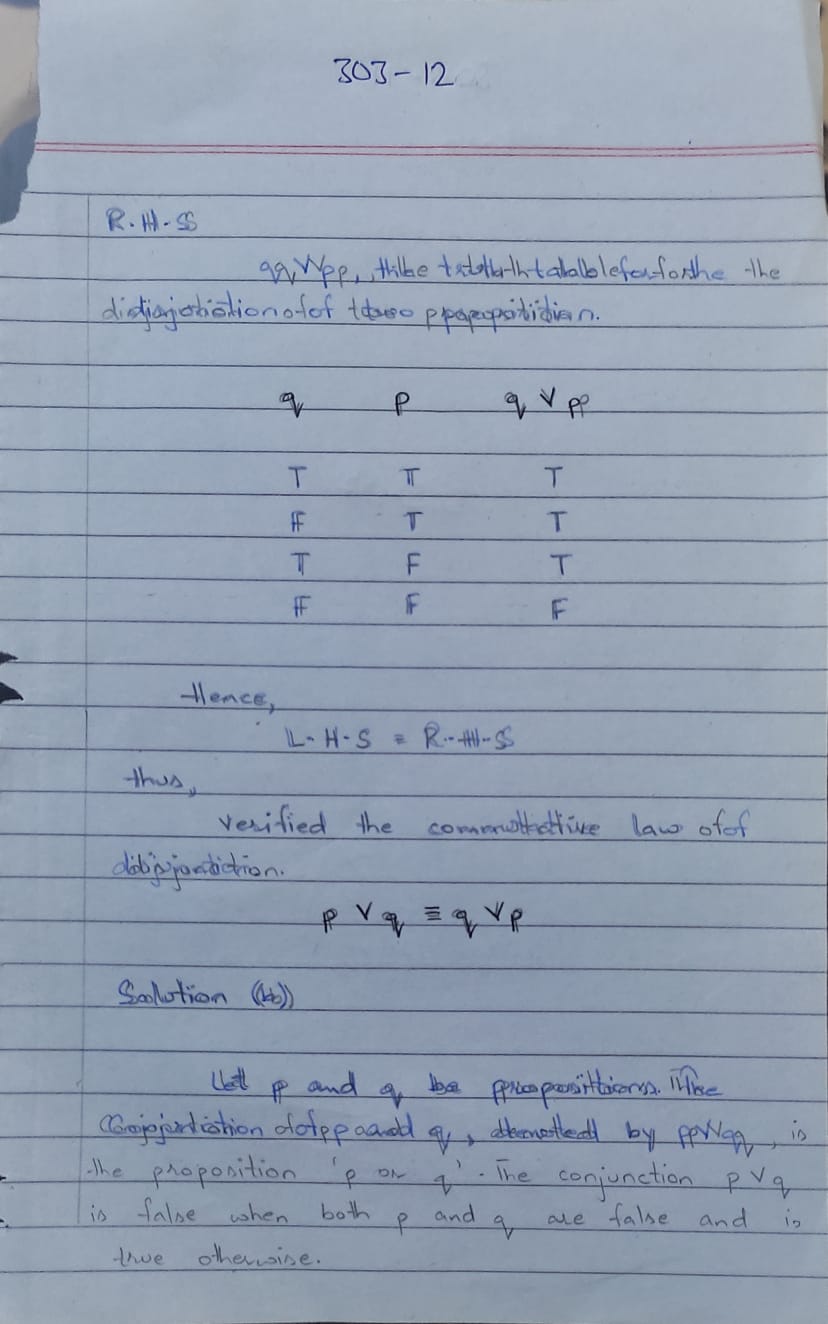 303-12
R.H.S
q V p, the truth table for the
disjunction of two proposition.
q p q V p
T T T
F T T
T F T
F F F
Hence,
L.H.S = R.H.S
thus,
verified the commutative law of
disjunction.
p V q ≡ q V p
Solution (b)
Let p and q be propositions. The
Conjunction of p and q, denoted by p V q, is
the proposition 'p or q'. The conjunction p V q
is false when both p and q are false and is
true otherwise.